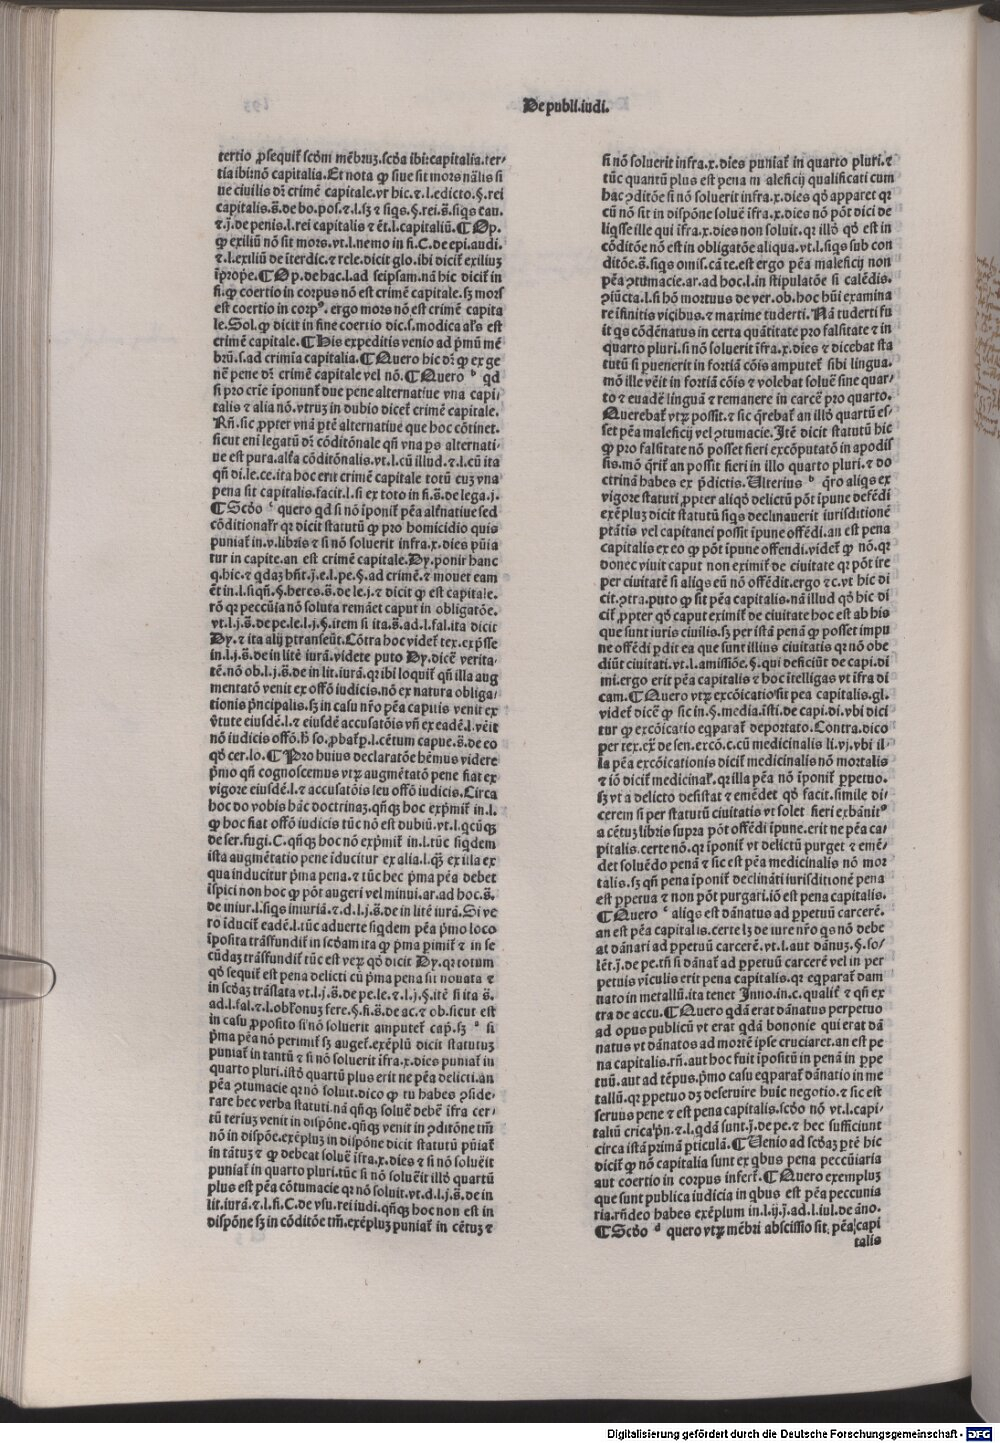 De publi.iudi.
tertio ꝓsequit̃ scd̃m mẽbruꝫ.scd̃a ibi:capitalia.ter-
tia ibi:nõ capitalia. Et nota ꝙ siue sit mors nãlis si
ue ciuilis dr̃ crimẽ capitale.vt hic.⁊.l.edicto.§.rei
capitalis.s̃.de bo.pos.⁊.l.sꝫ ⁊ siqs.§.rei.s̃.siqs cau.
⁊.j̃.de penis.l.rei capitalis ⁊ ẽt.l.capitaliũ. ¶Op.
ꝙ exiliũ nõ sit mors.vt.l.nemo in fi.C.de epi.audi.
⁊.l.exiliũ de ĩterdic.⁊ rele.dicit glo.ibi dicit̃ exiliuꝫ
ĩprop̃e. ¶Op.de hac.l.ad seipsam.nã hic dicit̃ in
fi.ꝙ coertio in corpus nõ est crimẽ capitale.sꝫ mors
est coertio in corpꝰ. ergo mors nõ est crimẽ capita
le. Sol.ꝙ dicit in fine coertio dic.s.modica al̃s est
crimẽ capitale. ¶His expeditis venio ad p̃mũ mẽ
brũ.s.ad crimĩa capitalia. ¶Quero hic dr̃ ꝙ ex ge
nẽ penẽ dr̃ crimẽ capitale vel nõ. ¶Quero b qd
si pro crie ĩponunt̃ due pene alternatiue vna capi-
talis ⁊ alia nõ.vtruꝫ in dubio dicet̃ crimẽ capitale.
Rñ.sic ꝓpter vnã ptẽ alternatiue que hoc cõtinet.
sicut eni legatũ dr̃ cõditõnale qñ vna ps alternati-
ue est pura.alt̃a cõditõnalis.vt.l.cũ illud.⁊.l.cũ ita
qñ di.le.ce.ita hoc erit crimẽ capitale totũ cuꝫ vna
pena sit capitalis.facit.l.si ex toto in fi.s̃.de lega.j.
¶Scd̃o c quero qd si nõ ĩponit̃ pẽa alt̃natiue sed
cõditionalr̃ qꝛ dicit statutũ ꝙ pro homicidio quis
puniat̃ in.v.libris ⁊ si nõ soluerit infra.x.dies pũia
tur in capite.an est crimẽ capitale. Dy.ponit hanc
q.hic.⁊ qdaꝫ hñt.j̃.e.l.pe.§.ad crimẽ.⁊ mouet eam
ẽt in.l.siqñ.§.heres.s̃.de le.j.⁊ dicit ꝙ est capitale.
rõ qꝛ peccũia nõ soluta remãet caput in obligatõe.
vt.l.j.s̃.de pe.le.l.j.§.item si ita.s̃.ad.l.fal.ita dicit
Dy.⁊ ita alij ptranseũt. Cõtra hoc videt̃ tex.exp̃sse
in.l.j.s̃.de in litẽ iurã.videte puto Dy.dicẽ verita-
tẽ.nõ ob.l.j.s̃.de in lit.iurã.qꝛ ibi loquit̃ qñ illa aug
mentatõ venit ex offõ iudicis.nõ ex natura obliga-
tionis pncipalis.sꝫ in casu nr̃o pẽa capitis venit ex
ṽtute eiusdẽ.l.⁊ eiusdẽ accusatõis vñ ex eadẽ.l.vẽit
nõ iudicis offõ.h̃ so.ꝓbat̃ p.l.cẽtum capue.s̃.de eo
qd̃ cer.lo. ¶Pro huius declaratõe hẽmus videre
p̃mo qñ cognoscemus vtꝝ augmẽtatõ pene fiat ex
vigore eiusdẽ.l.⁊ accusatõis seu offõ iudicis. Circa
hoc do vobis hãc doctrinaꝫ.qñqꝫ hoc exp̃mit̃ in.l.
ꝙ hoc fiat offõ iudicis tũc nõ est dubiũ.vt.l.qcũqꝫ
de ser.fugi.C.qñqꝫ hoc nõ exp̃mit̃ in.l.tũc siqdem
ista augmẽtatio pene ĩducitur ex alia.l.qꝫ̃ ex illa ex
qua inducitur p̃ma pena.⁊ tũc hec p̃ma pẽa debet
ĩspici non hoc ꝙ põt augeri vel minui.ar.ad hoc.s̃.
de iniur.l.siqs iniuriã.⁊.d.l.j.s̃.de in litẽ iurã. Si ve
ro ĩducit̃ eadẽ.l.tũc aduerte siqdem pẽa p̃mo loco
ĩposita trãsfundit̃ in scd̃am ita ꝙ p̃ma pimit̃ ⁊ in se
cũdaꝫ trãsfundit̃ tũc est verꝫ qd̃ dicit Dy.qꝛ totum
qd̃ sequit̃ est pena delicti cũ p̃ma pena sit nouata ⁊
in scd̃aꝫ trãslata vt.l.j.s̃.de pe.le.⁊.l.j.§.itẽ si ita s̃.
ad.l.fal.⁊.l.obr̃onuꝫ fere.§.fi.s̃.de ac.⁊ ob.sicut est
in casu ꝓposito si nõ soluerit amputet̃ cap̃.sꝫ si
p̃ma pẽa nõ perimit̃ sꝫ auget̃.exẽplũ dicit statutuꝫ
puniat̃ in tantũ ⁊ si nõ soluerit ĩfra.x.dies puniat̃ in
quarto pluri.istd̃ quartũ plus erit ne pẽa delicti.an
pẽa ꝯtumacie qꝛ nõ soluit.dico ꝙ tu habes ꝯside-
rare hec verba statuti.nã qñqꝫ soluẽ debẽ ĩfra cer-
tũ teriuꝫ venit in dispõne.qñqꝫ venit in ꝯditõne tm̃
nõ in dispõe.exẽpluꝫ in dispõne dicit statutũ pũiat̃
in tãtuꝫ ⁊ ꝙ debeat soluẽ ĩfra.x.dies ⁊ si nõ soluẽit
puniat̃ in quarto pluri.tũc si nõ soluẽit illõ quartũ
plus est pẽa cõtumacie qꝛ nõ soluit.vt.d.l.j.s̃.de in
lit.iurã.⁊.l.fi.C.de vsu.rei iudi.qñqꝫ hoc non est in
dispõne sꝫ in cõditõe tm̃.exẽpluꝫ puniat̃ in cẽtuꝫ ⁊
si nõ soluerit infra.x.dies puniat̃ in quarto pluri.⁊
tũc quantũ plus est pena maleficij qualificati cum
hac ꝯditõe si nõ soluerit infra.x.dies qd̃ apparet qꝛ
cũ nõ sit in dispõne soluẽ ĩfra.x.dies nõ põt dici de
liqsse ille qui ĩfra.x.dies non soluit.qꝛ illõ qd̃ est in
cõditõe nõ est in obligatõe aliqua.vt.l.siqs sub con
ditõe.s̃.siqs omis.cã te.est ergo pẽa maleficij non
pẽa ꝯtumacie.ar.ad hoc.l.in stipulatõe si calẽdis.
ꝯiũcta.l.si hõ mortuus de ver.ob.hoc hũi examina
re ĩfinitis vicibus.⁊ maxime tuderti. Nã tuderti fu
it qs cõdẽnatus in certa quãtitate pro falsitate ⁊ in
quarto pluri.si nõ soluerit ĩfra.x.dies ⁊ dicebat sta
tutũ si puenerit in fortiã cõis amputet̃ sibi lingua.
mõ ille vẽit in fortiã cõis ⁊ volebat soluẽ sine quar-
to ⁊ euadẽ linguã ⁊ remanere in carcẽ pro quarto.
Querebat̃ vtꝝ possit.⁊ sic q̃rebat̃ an illd̃ quartũ es-
set pẽa maleficij vel ꝯtumacie. Itẽ dicit statutũ hic
ꝙ pro falsitate nõ posset fieri excõputatõ in apodis
sis.mõ q̃rit̃ an possit fieri in illo quarto pluri.⁊ do
ctrinã habes ex p̃dictis. Ulterius b q̃ro aliqs ex
vigore statuti ꝓpter aliqd̃ delictũ põt ĩpune defẽdi
exẽpluꝫ dicit statutũ siqs declinauerit iurisditionẽ
ptãtis vel capitanei possit ĩpune offẽdi.an est pena
capitalis ex eo ꝙ põt ĩpune offendi.videt̃ ꝙ nõ.qꝛ
donec viuit caput non eximit̃ de ciuitate qꝛ põt ire
per ciuitatẽ si aliqs eũ nõ offẽdit.ergo ⁊c.vt hic di
cit.ꝯtra.puto ꝙ sit pẽa capitalis.nã illud qd̃ hic di
cit̃ ꝓpter qd̃ caput eximit̃ de ciuitate hoc est ab his
que sunt iuris ciuilis.sꝫ per istã penã ꝙ posset impu
ne offẽdi pdit ea que sunt illius ciuitatis qꝛ nõ obe
diũt ciuitati.vt.l.amissiõe.§.qui deficiũt de capi.di
mi.ergo erit pẽa capitalis ⁊ hoc ĩtelligas vt ĩfra di
cam. ¶Quero vtꝝ excõicatio sit pea capitalis.gl.
videt̃ dicẽ ꝙ sic in.§.media.ĩsti.de capi.di.vbi dici
tur ꝙ excõicatio eqparat̃ deportato. Contra.dico
per tex.ex̃ de sen.excõ.c.cũ medicinalis li.vj.vbi il-
la pẽa excõicationis dicit̃ medicinalis nõ mortalis
⁊ iõ dicit̃ medicinal̃.qꝛ illa pẽa nõ ĩponit̃ ꝑpetuo.
sꝫ vt a delicto desistat ⁊ emẽdet qd̃ facit.simile di-
cerem si per statutũ ciuitatis vt solet fieri exbãnitꝰ
a cẽtuꝫ libris supra põt offẽdi ĩpune.erit ne pẽa ca-
pitalis.certe nõ.qꝛ ĩponit̃ vt delictũ purget ⁊ emẽ-
det soluẽdo penã ⁊ sic est pẽa medicinalis nõ mor
talis.sꝫ qñ pena ĩponit̃ declinãti iurisditionẽ pena
est ꝑpetua ⁊ non põt purgari.iõ est pena capitalis.
¶Quero c aliqs est dãnatus ad ꝑpetuũ carcerẽ.
an est pẽa capitalis.certe lꝫ de iure nr̃o qs nõ debe
at dãnari ad ꝑpetuũ carcerẽ.vt.l.aut dãnuꝫ.§.so-
lẽt.j̃.de pe.tñ si dãnat̃ ad ꝑpetuũ carcerẽ vel in per
petuis vĩculis erit pena capitalis.qꝛ eqparat̃ dam
nato in metallũ.ita tenet Inno.in.c.qualit̃ ⁊ qñ ex
tra de accu. ¶Quero qdã erat dãnatus perpetuo
ad opus publicũ vt erat qdã bononie qui erat dã
natus vt dãnatos ad mortẽ ip̃e cruciaret.an est pe
na capitalis.rñ.aut hoc fuit ĩpositũ in penã in ꝑpe
tuũ.aut ad tẽpus.p̃mo casu eqparat̃ dãnatio in me
tallũ.qꝛ ꝑpetuo dꝫ deseruire huic negotio.⁊ sic est
seruus pene ⁊ est pena capitalis.scd̃o nõ vt.l.capi-
taliũ crica pn̄.⁊.l.qdã sunt.j̃.de pe.⁊ hec sufficiunt
circa istã primã pticulã. ¶Uenio ad scd̃aꝫ ptẽ hic
dicit̃ ꝙ nõ capitalia sunt ex qbus pena peccũiaria
aut coertio in corpus infert̃. ¶Quero exempluꝫ
que sunt publica iudicia in qbus est pẽa peccunia
ria.rñdeo habes exẽplum in.l.ij.j̃.ad.l.iul.de ãno.
¶Scd̃o d quero vtꝝ mẽbri abscissio sit pẽa capi
talis
Digitalisierung gefördert durch die Deutsche Forschungsgemeinschaft - DFG